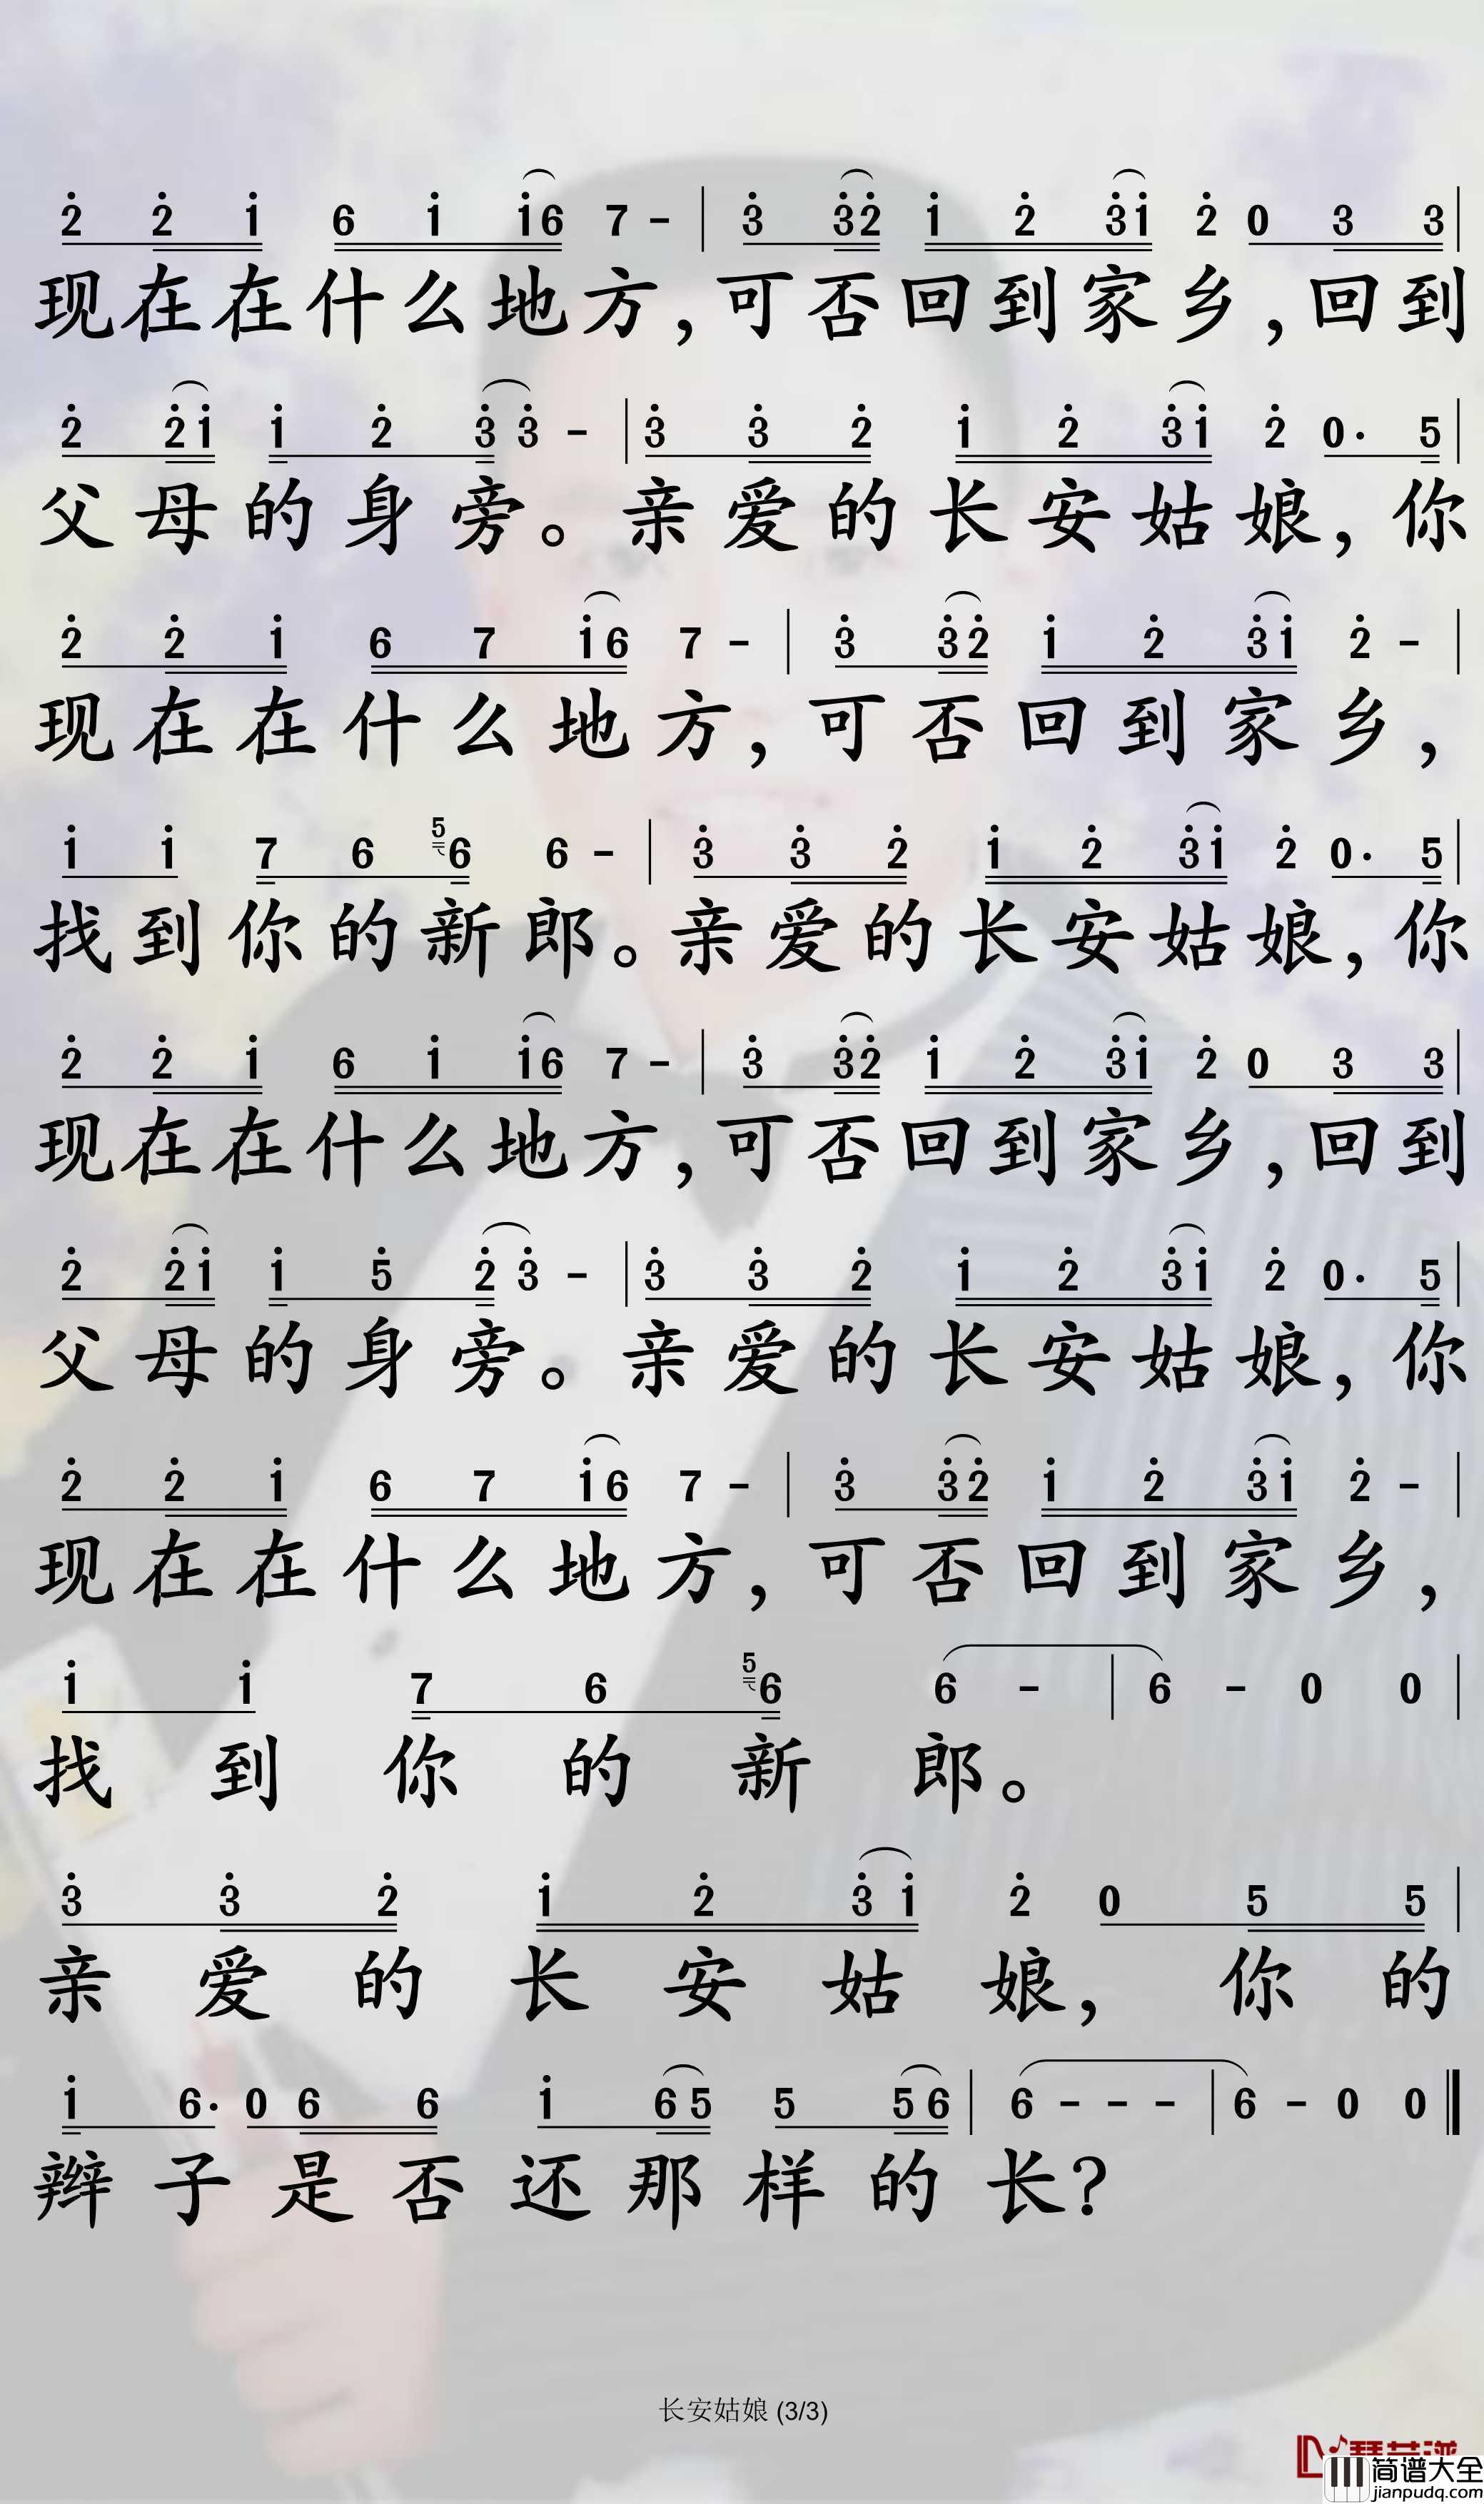 2̇ 2̇ 1̇ 6 1̇ 1̇ 6 7 - | 3̇ 3̇ 2̇ 1̇ 2̇ 3̇ 1̇ 2̇ 0 3 3 |
现在在什么地方，可否回到家乡，回到
2̇ 2̇ 1̇ 1̇ 2̇ 3̇ 3̇ - | 3̇ 3̇ 2̇ 1̇ 2̇ 3̇ 1̇ 2̇ 0· 5 |
父母的身旁。亲爱的长安姑娘，你
2̇ 2̇ 1̇ 6 7 1̇ 6 7 - | 3̇ 3̇ 2̇ 1̇ 2̇ 3̇ 1̇ 2̇ - |
现在在什么地方，可否回到家乡，
1̇ 1̇ 7 6 5 6 6 - | 3̇ 3̇ 2̇ 1̇ 2̇ 3̇ 1̇ 2̇ 0· 5 |
找到你的新郎。亲爱的长安姑娘，你
2̇ 2̇ 1̇ 6 1̇ 1̇ 6 7 - | 3̇ 3̇ 2̇ 1̇ 2̇ 3̇ 1̇ 2̇ 0 3 3 |
现在在什么地方，可否回到家乡，回到
2̇ 2̇ 1̇ 1̇ 5̇ 2̇ 3̇ - | 3̇ 3̇ 2̇ 1̇ 2̇ 3̇ 1̇ 2̇ 0· 5 |
父母的身旁。亲爱的长安姑娘，你
2̇ 2̇ 1̇ 6 7 1̇ 6 7 - | 3̇ 3̇ 2̇ 1̇ 2̇ 3̇ 1̇ 2̇ - |
现在在什么地方，可否回到家乡，
1̇ 1̇ 7 6 5 6 6 - | 6 - 0 0 |
找到你的新郎。
3̇ 3̇ 2̇ 1̇ 2̇ 3̇ 1̇ 2̇ 0 5 5 |
亲爱的长安姑娘，你的
1̇ 6· 0 6 6 1̇ 6 5 5 5 6 | 6 - - - | 6 - 0 0 ‖
辫子是否还那样的长？
长安姑娘 (3/3)
简谱大全
jianpudq.com